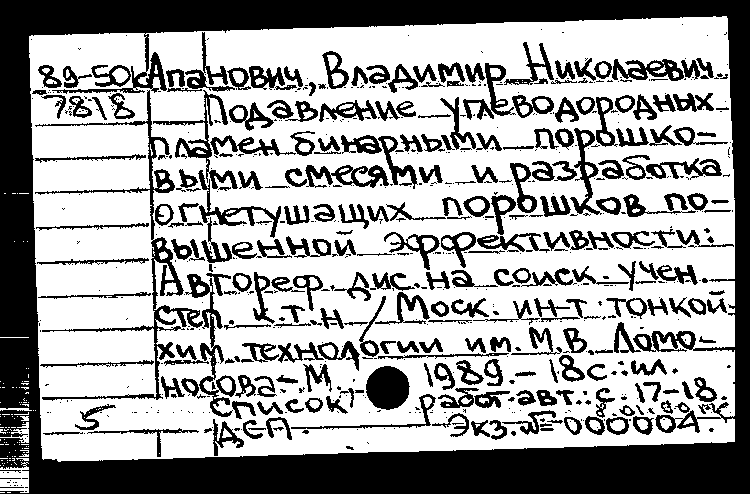 89-50к Апанович, Владимир Николаевич
7818 Подавление углеводородных
пламен бинарными порошко-
выми смесями и разработка
огнетушащих порошков по-
вышенной эффективности:
Автореф. дис. на соиск. учен.
степ. к.т.н / Моск. ин-т тонкой
хим. технологии им. М.В. Ломо-
носова.- М., 1989.- 18с.:ил.
Список работ авт.: с. 17-18.
5 ДСП. Экз. № 000004.